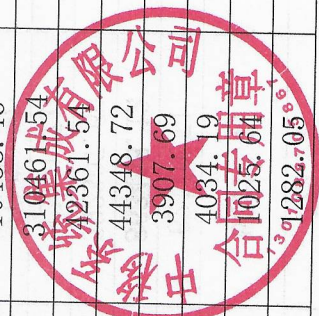 310461.54
42361.54
44348.72
3907.69
4034.19
1025.64
1282.05
成有限公司
合同专用章